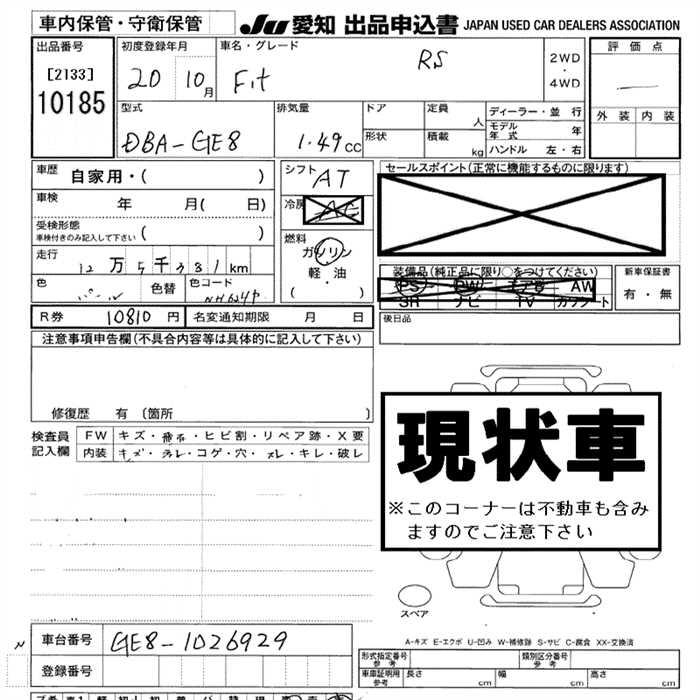 車内保管・守衛保管
JU 愛知 出品申込書 JAPAN USED CAR DEALERS ASSOCIATION
出品番号
[2133]
10185
初度登録年月
20 10月
車名・グレード
Fit RS
2WD
・
4WD
評価点
外装 内装
型式
DBA-GE8
排気量
1.49cc
ドア
形状
定員 人
積載 kg
ディーラー・並行
モデル年式 年
ハンドル 左・右
車歴 自家用・( )
車検 年 月( 日)
受検形態
車検付きのみ記入して下さい ( )
走行 12万5千381km
色 パール 色替 色コード NH624P
シフト AT
冷房 AC
燃料
ガソリン
軽・油
( )
セールスポイント(正常に機能するものに限ります)
装備品(純正品に限り○をつけてください)
PS PW AW
SR ナビ TV カセット
新車保証書
有・無
R券 10810円 名変通知期限 月 日
後日品
注意事項申告欄(不具合内容等は具体的に記入して下さい)
修復歴 有 〔箇所 〕
検査員
記入欄
FW キズ・飛石・ヒビ割・リペア跡・X要
内装 キズ・ヨレ・コゲ・穴・スレ・キレ・破レ
現状車
※このコーナーは不動車も含み
ますのでご注意下さい
スペア
A-キズ E-エクボ U-凹み W-補修跡 S-サビ C-腐食 XX-交換済
N
車台番号 GE8-1026929
登録番号
形式指定番号
参考
類別区分番号
参考
車庫証明用
参考
長さ cm 幅 cm 高さ cm